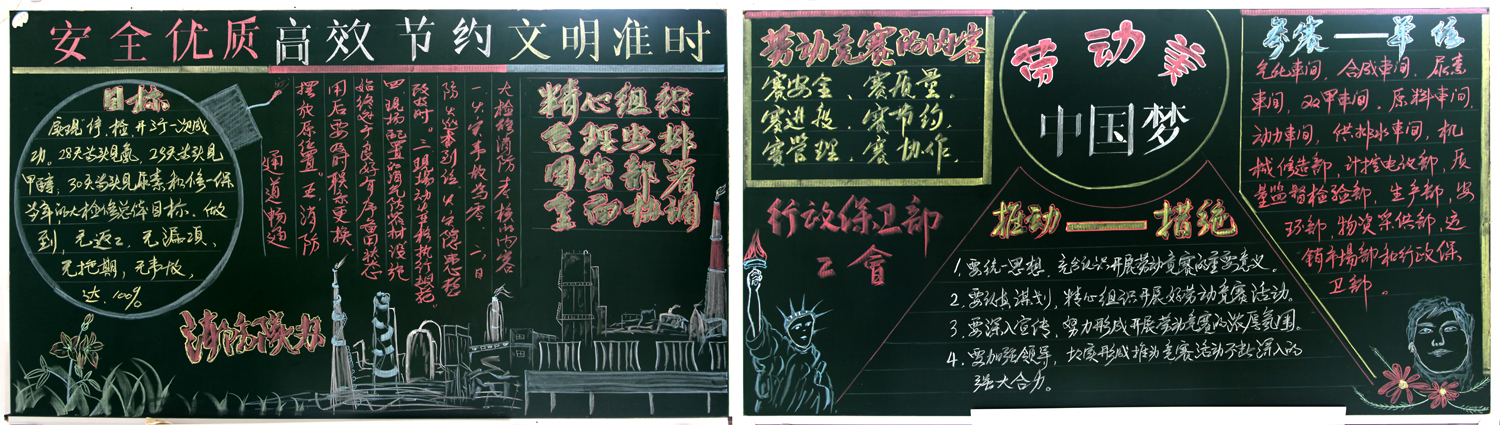 安全优质 高效 节约 文明准时
目标
实现停、检、开车一次成
功。28天苦头见氨、29天苦头见
甲醇、30天苦头见尿素和修一保
当年的大检修总体目标。做
到，无返工、无漏项、
无拖期，无事故，
达100%
大检修消防考核的内容
一、火灾事故为零。二、日
防火巡查到位、火灾隐患整
改及时。三、现场动火严格执行规范。
四、现场配置的消防器材设施
始终处于良好有序备用状态
用后要及时联系更换
摆放原位置。五、消防
通道畅通
精心组织
合理安排
周密部署
全面协调
消防队办
劳动竞赛的内容
赛安全、赛质量、
赛进度、赛节约、
赛管理、赛协作。
行政保卫部
工會
劳动美
中国梦
推动——措施
1. 要统一思想、充分认识开展劳动竞赛的重要意义。
2. 要认真谋划，精心组织开展好劳动竞赛活动。
3. 要深入宣传，努力形成开展劳动竞赛的浓厚氛围。
4. 要加强领导，长度形成推动竞赛活动不断深入的
强大合力。
参赛——单位
气化车间、合成车间、尿素
车间、双甲车间、原料车间、
动力车间、供排水车间、机
械修造部、计控电仪部、质
量监督检验部、生产部、安
环部、物资采供部、运
销市场部和行政保
卫部。